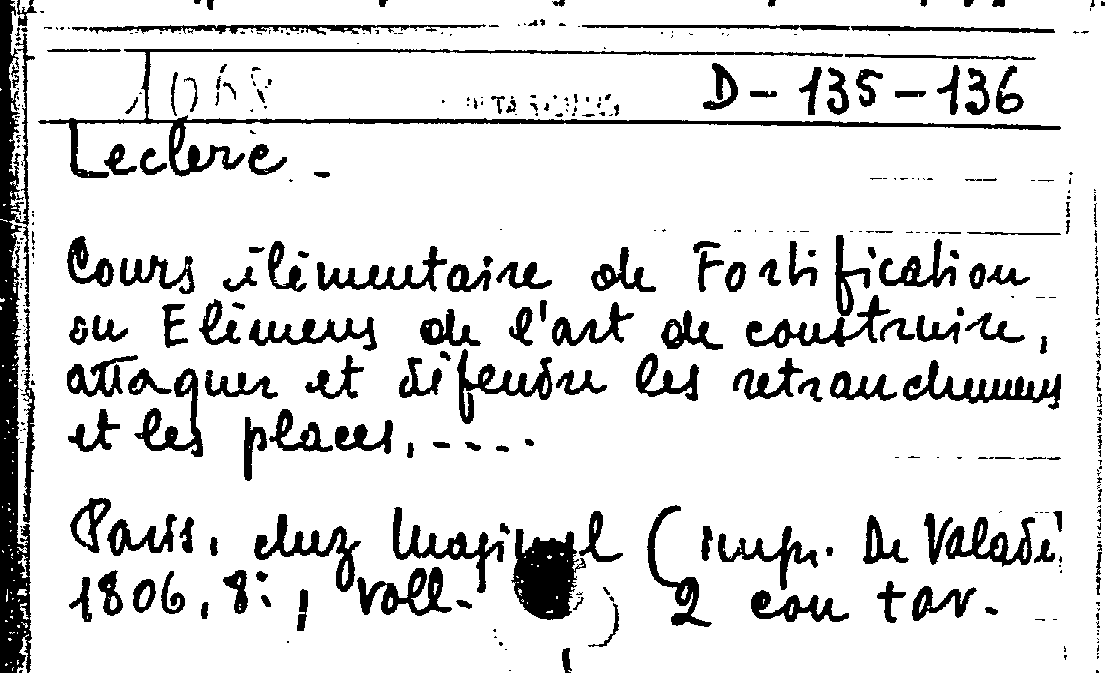 1068 D - 135 - 136
Leclerc -
Cours élémentaire de Fortification
ou Elémens de l'art de construire,
attaquer et défendre les retranchemens
et les places, ----
Paris, chez Magimel (impr. De Valade
1806, 8:, voll. ) 2 con tav.